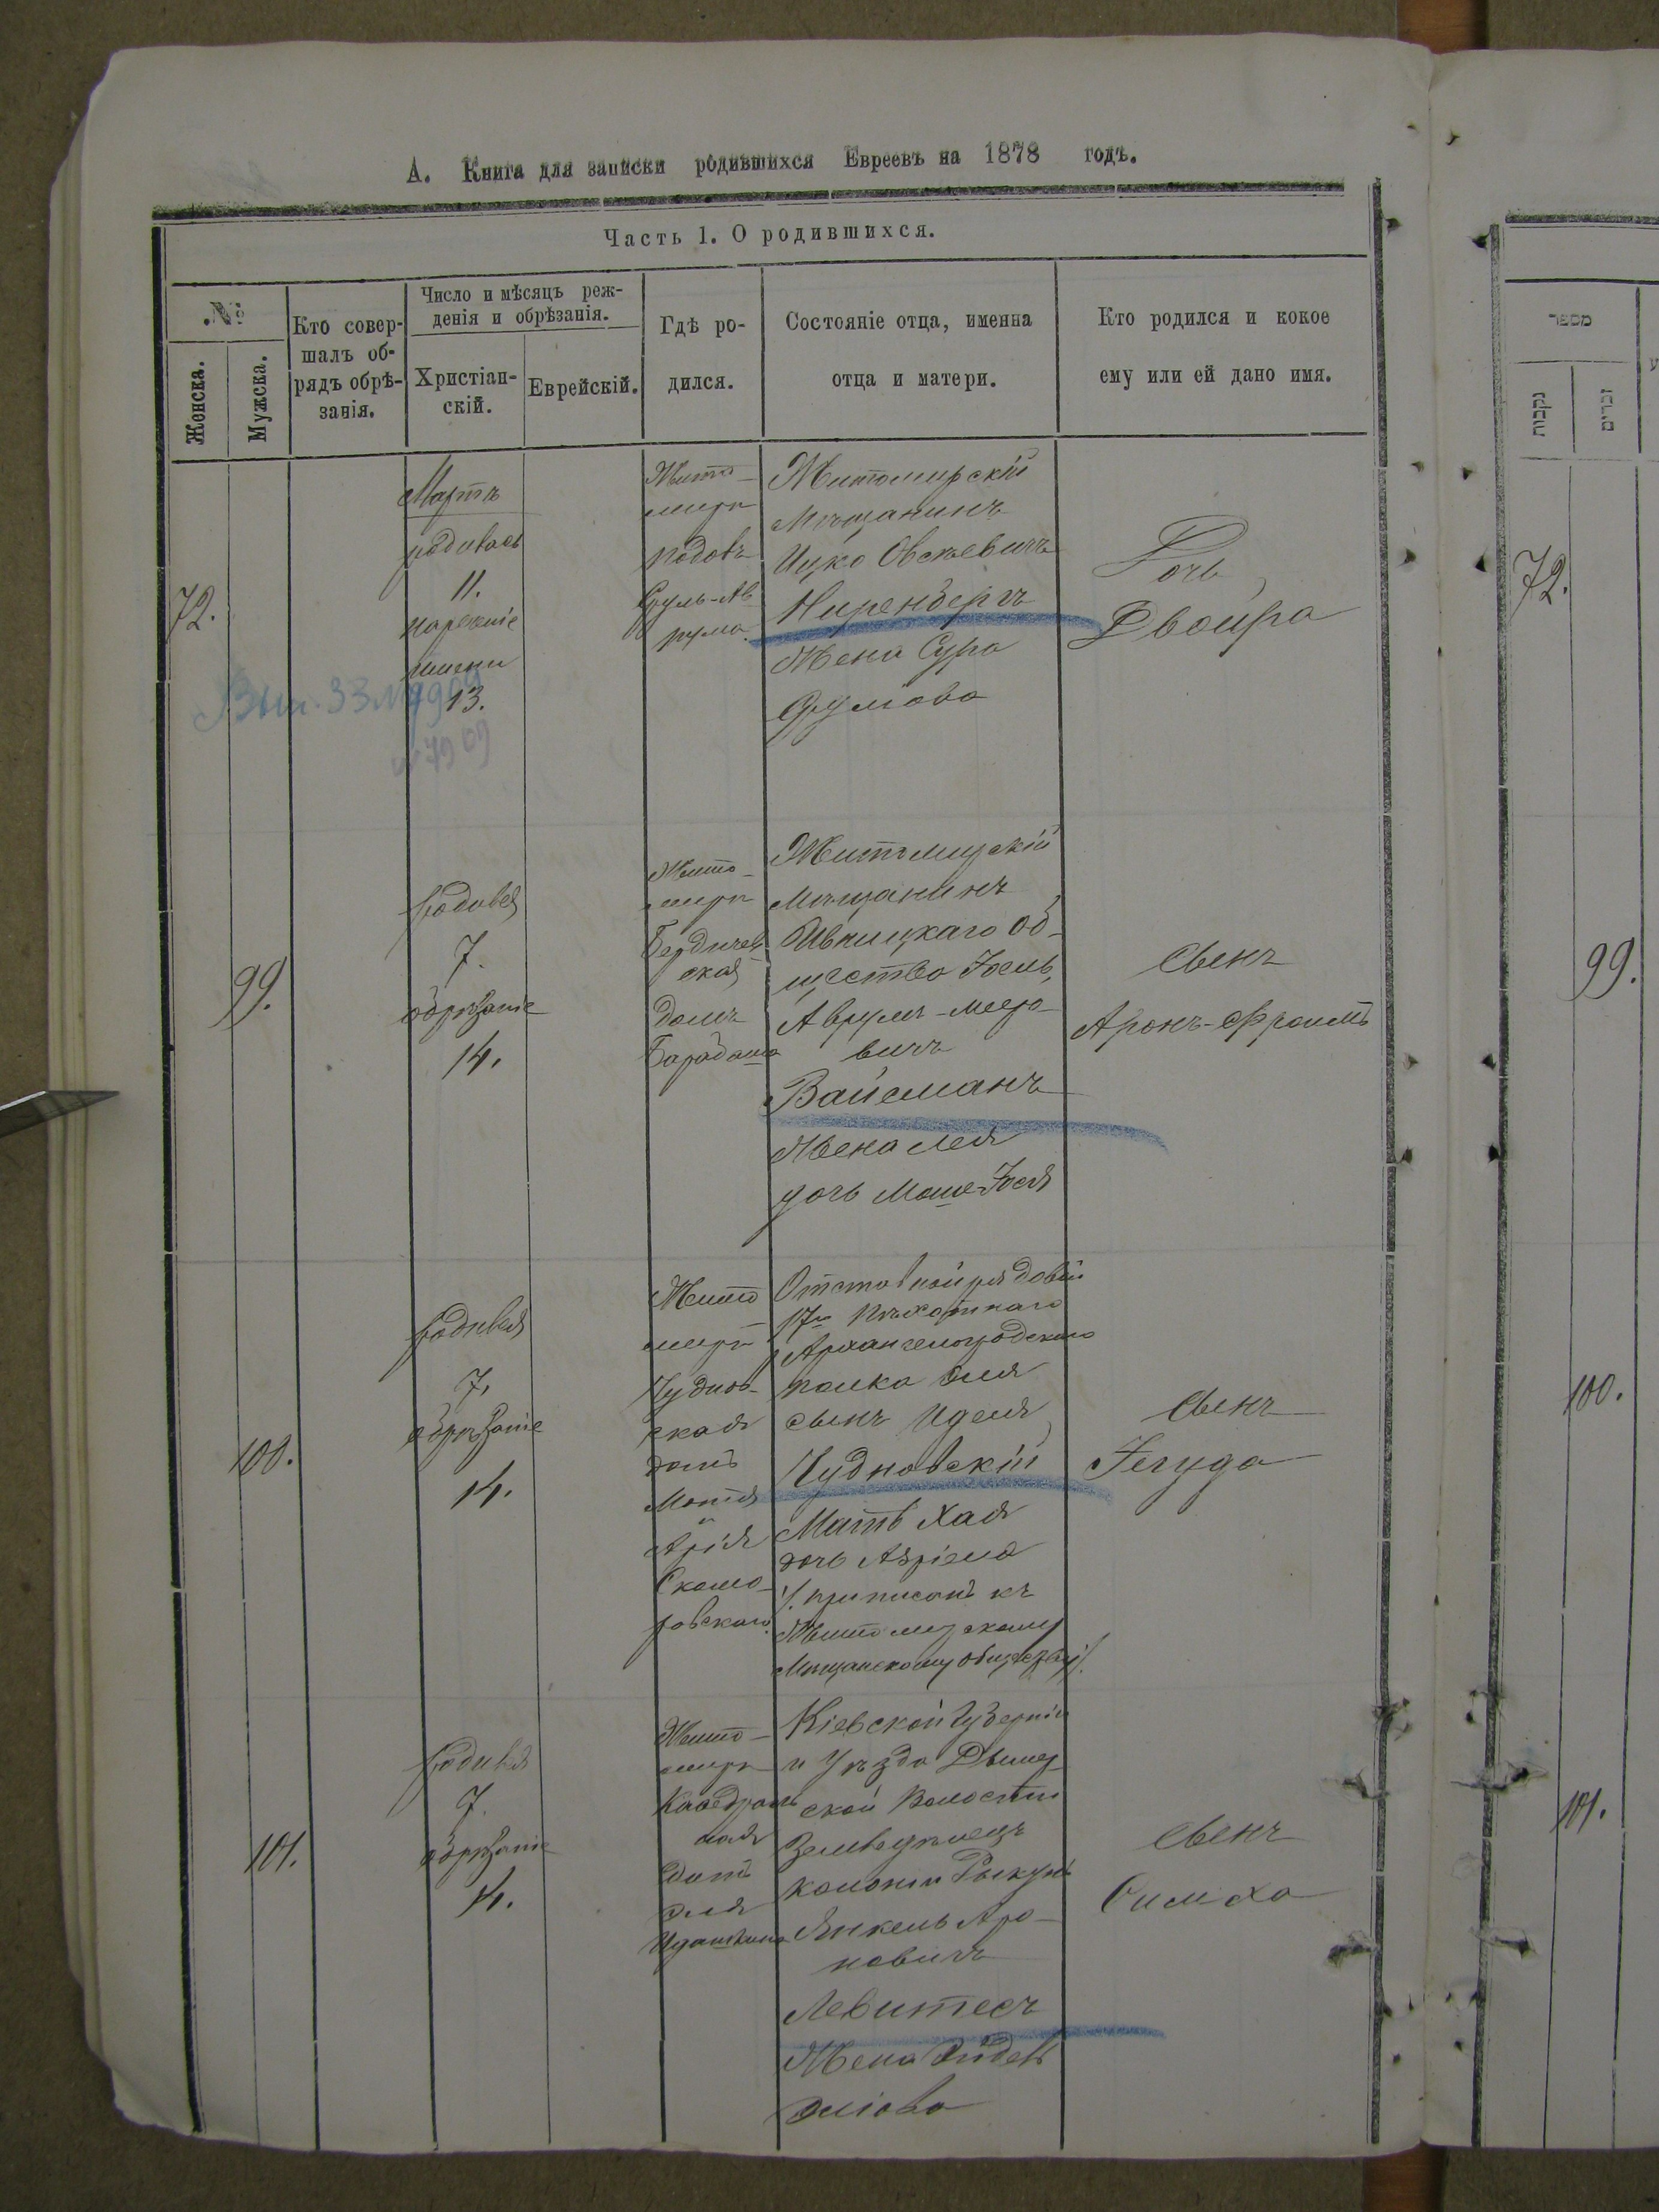 А. Книга для записки родившихся Евреевъ на 1878 годъ.
Часть 1. О родившихся.
№
Женска.
Мужска.
Кто совер-
шалъ об-
рядъ обрѣ-
занія.
Число и мѣсяцъ реж-
денія и обрѣзанія.
Христіан-
скій.
Еврейскій.
Гдѣ ро-
дился.
Состояніе отца, именна
отца и матери.
Кто родился и кокое
ему или ей дано имя.
מספר
נקבות
זכרים
72.
Мартъ
родилась
11.
нареченіе
имени
13.
Жито-
мирѣ
Житомирскій
Мѣщанинъ
Ицко Овсѣевичъ
Ниренбергъ
Жена Сура
Дочь
Двойра
72.
99.
родился
7.
обрѣзаніе
14.
Жито-
мирѣ
Бердичев
ская
домъ
Житомирскій
Мѣщанинъ
Ивницкаго Об-
щества Іосель
Аврумъ-Меро-
вичъ
Вайсманъ
Жена Лея
дочь Моше-Іося
Сынъ
Аронъ-Фроимъ
99.
100.
родился
7.
обрѣзаніе
14.
Жито
мирѣ
Чуднов-
ская
домъ
Мотя
Арія
Скомо-
ровскаго.
Отставной рядовой
17го пѣхотнаго
Архангелогородскаго
полка Эля
сынъ Иделя
Чудновскій
Мать Хая
дочь Азріела
/. приписанъ къ
Житомирскому
Мѣщанскому обществу/.
Сынъ
Іегуда
100.
101.
родился
7.
обрѣзаніе
14.
Жито-
мирѣ
Каѳедраль
ная
домъ
Эля
Кіевской Губерніи
и Уѣзда Дымер
ской Волости
Земледѣлецъ
колоніи Рыкунь
Янкель Аро-
новичъ
Левитесъ
Жена
Эліова
Сынъ
Симха
101.